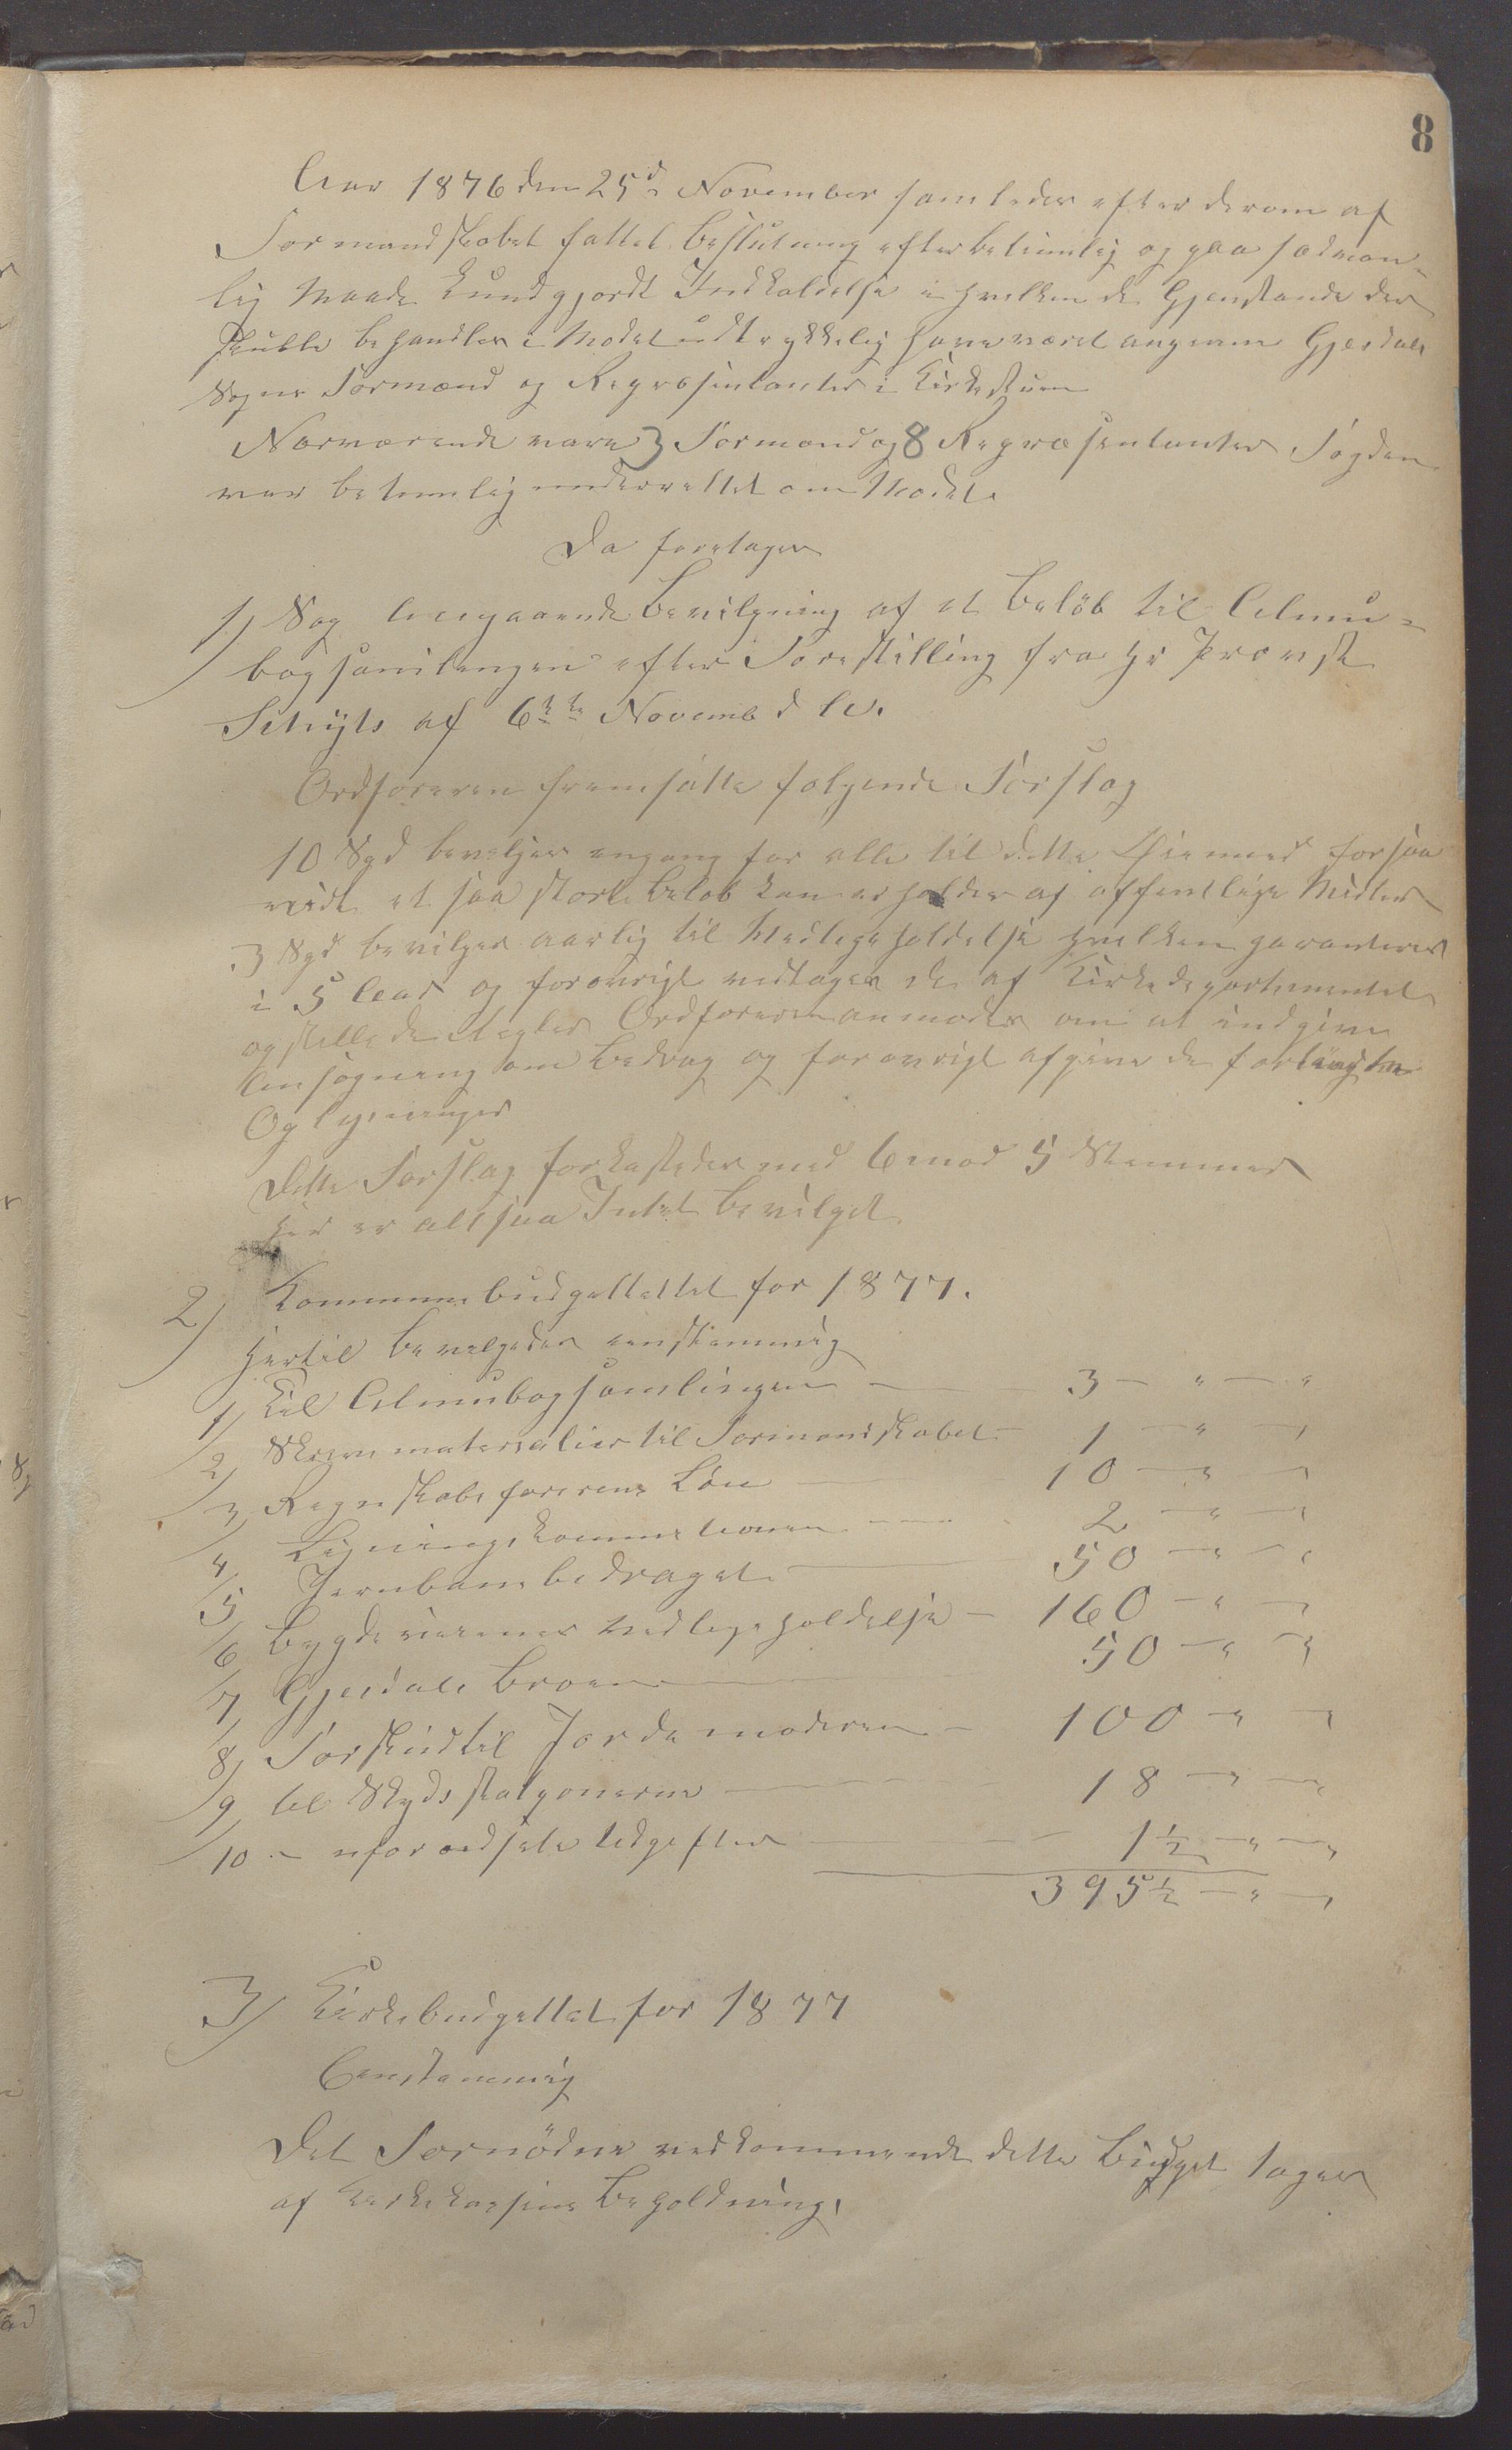 8
Aar 1876 den 25de November samledes efter derom af
Formandskabet fattet Beslutning efter betimelig og paa sædvan-
lig Maade kundgjordt Indkaldelse i hvilken de Gjenstande der
skulle behandles i Mødet udtrykkelig have været angivne Gjesdals
Sogns Formænd og Repræsentanter i Kirkestuen
Nærværende vare 3 Formænd og 8 Repræsentanter Fogden
var betimelig underrettet om Mødet.
Da foretages
1) Sag Angaaende Bevilgning af et Beløb til Almu-
bogsamlingen efter Forestilling fra Hr Provst
af 6te Novemb d A.
Ordføreren fremsatte følgende Forslag
10 Spd bevilges engang for alle til dette Øiemed forsaa
vidt et saa stort Beløb kan erholdes af offentlige Midler
3 Spd bevilges aarlig til Vedligeholdelse hvilken garanteres
i 5 Aar og forøvrigt vedtages de af Kirkedepartementet
opstillede Regler Ordføreren anmodes om at indgive
Ansøgning om Bidrag og forøvrigt afgive de forlangte
Oplysninger
Dette Forslag forkastedes med 6 mod 5 Stemmer
Her er altsaa Intet bevilget
2) Kommunebudgettettet for 1877.
Hertil bevilgedes eenstemmig
1) Til Almubogsamlingen — 3 — " — "
2) Skrivematerialier til Formandskabet — 1 — " — "
3 Regnskabsførerens Løn — 10 — " — "
4 Ligningskommisionen — 2 — " — "
5 Jernbanebidraget — 50 — " — "
6 Bygdeveienes Vedligeholdelse — 160 — " — "
7 Gjesdals Broen — 50 — " — "
8) Forskud til Jordemoderen — 100 — " — "
9 til Skydsstatgonerne — 18 — " — "
10 — uforudseete Udgifter — 1½ — " — "
395½ — " — "
3) Kirkebudgettet for 1877
Eenstemmig
Det Fornødne vedkommende dette Budget tages
af Kirkekassens Beholdning.